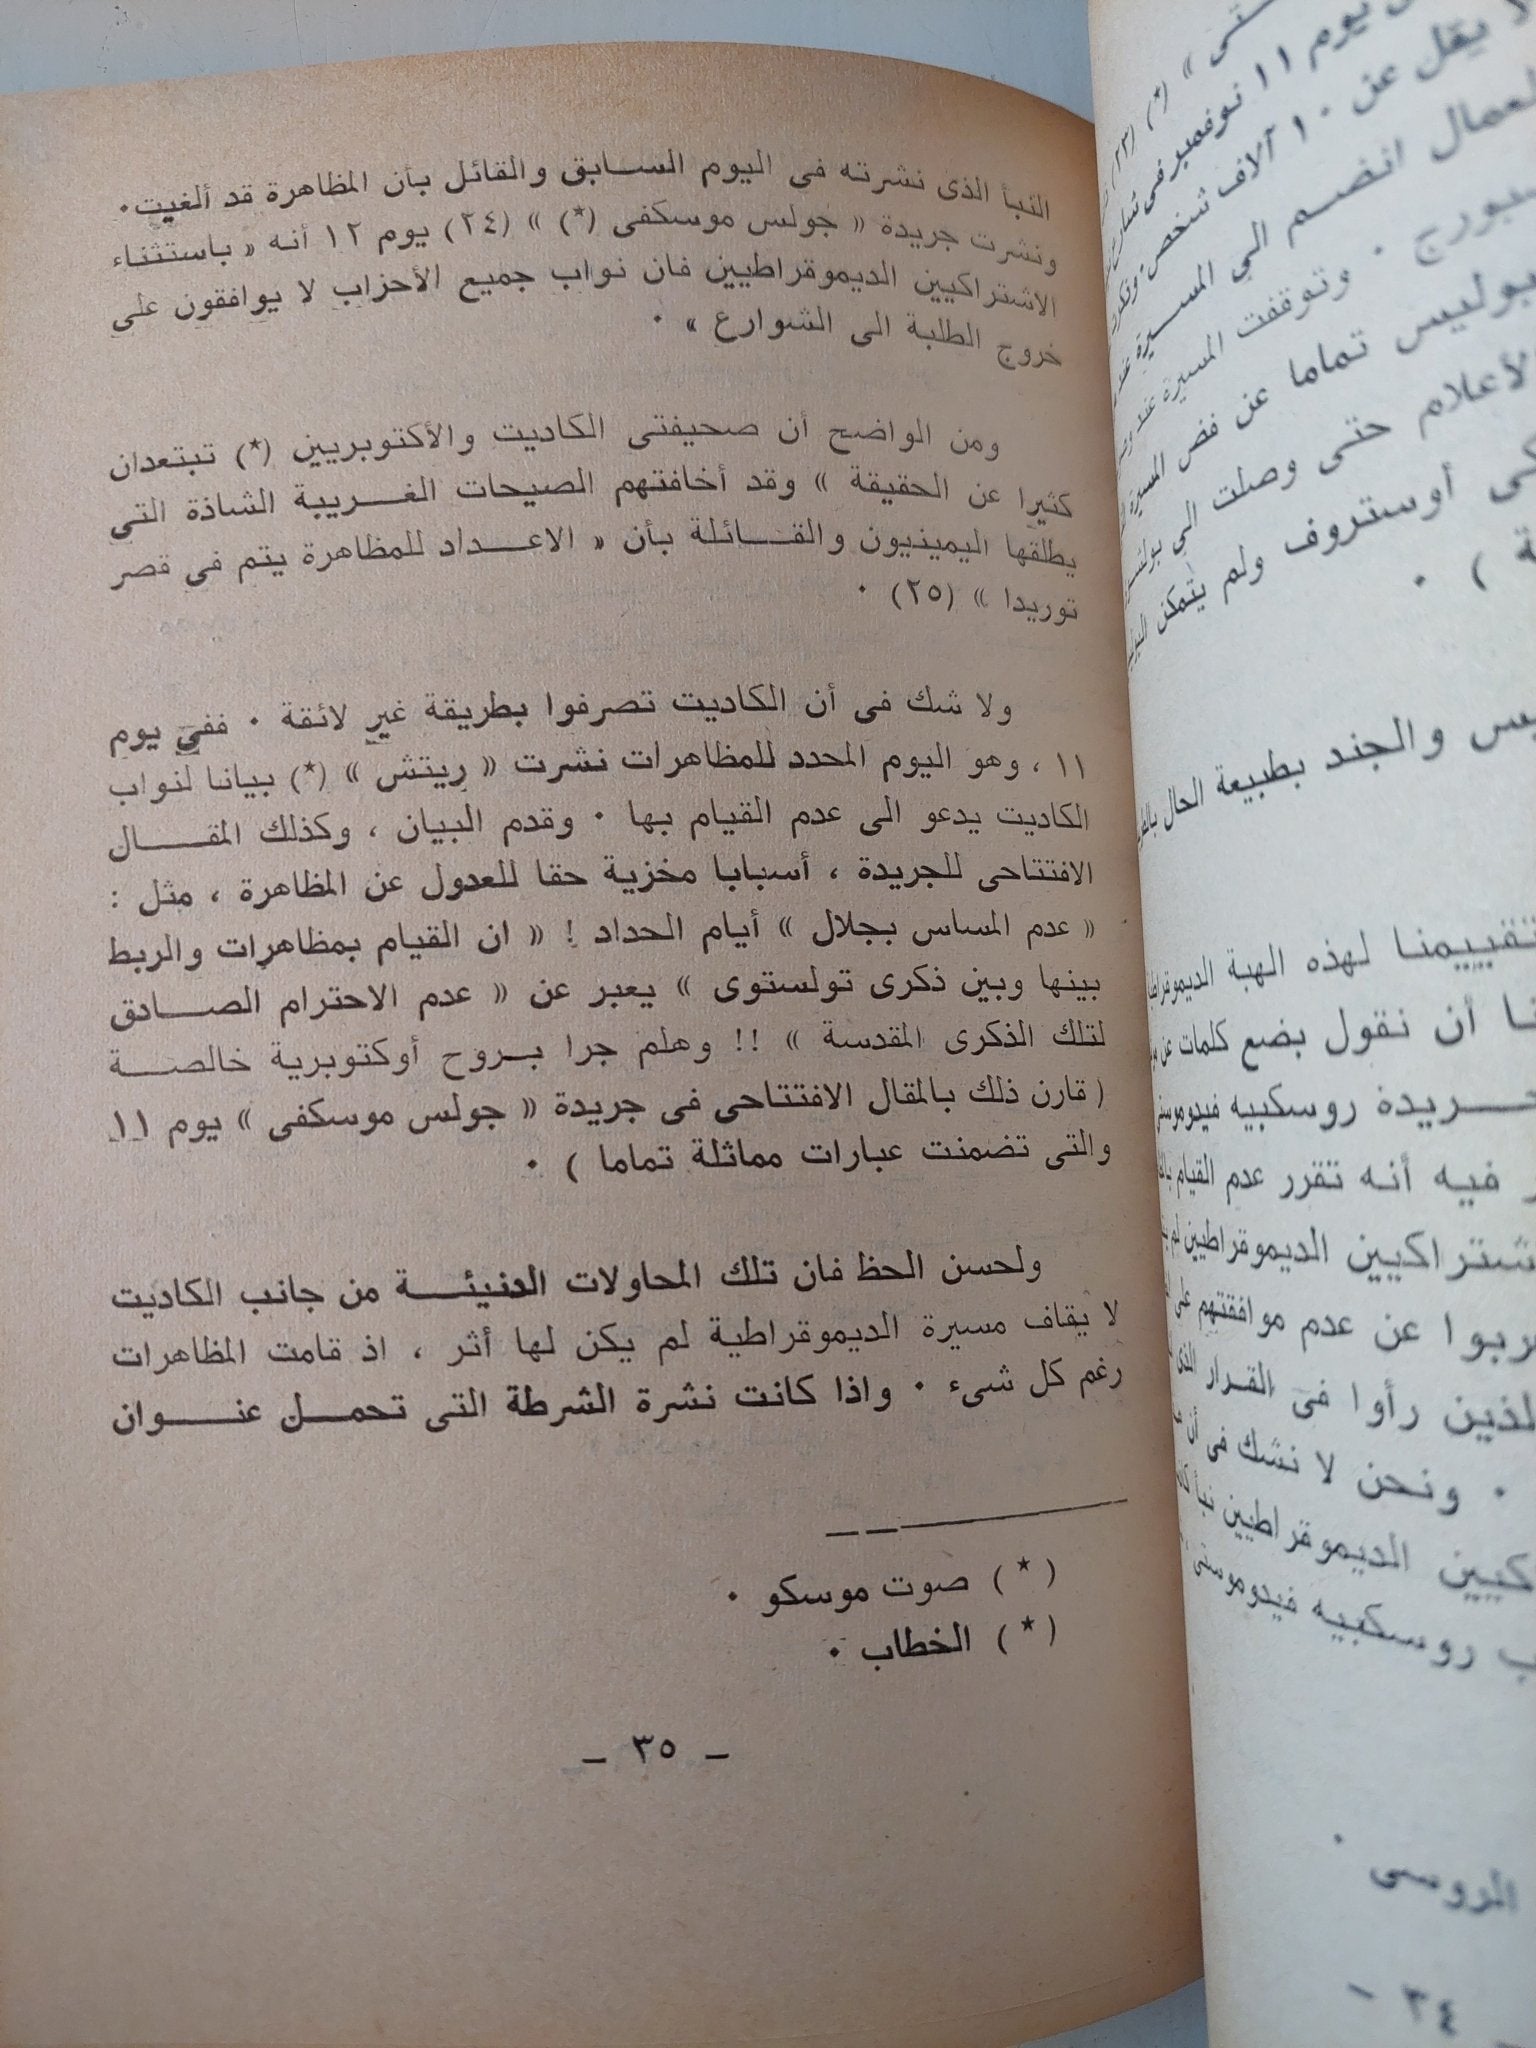 النبأ الذى نشرته فى اليوم السابق والقائل بأن المظاهرة قد ألغيت ٠
ونشرت جريدة « جولس موسكفى (*) » (٢٤) يوم ١٢ أنه « باستثناء
الاشتراكيين الديموقراطيين فان نواب جميع الأحزاب لا يوافقون على
خروج الطلبة الى الشوارع » ٠
ومن الواضح أن صحيفتى الكاديت والأكتوبريين (*) تبتعدان
كثيرا عن الحقيقة » وقد أخافتهم الصيحات الغريبة الشاذة التى
يطلقها اليمينيون والقائلة بأن « الاعداد للمظاهرة يتم فى قصر
توريدا » (٢٥) ٠
ولا شك فى أن الكاديت تصرفوا بطريقة غير لائقة ٠ ففى يوم
١١ ، وهو اليوم المحدد للمظاهرات نشرت « ريتش » (*) بيانا لنواب
الكاديت يدعو الى عدم القيام بها ٠ وقدم البيان ، وكذلك المقال
الافتتاحى للجريدة ، أسبابا مخزية حقا للعدول عن المظاهرة ، مثل :
« عدم المساس بجلال » أيام الحداد ! « ان القيام بمظاهرات والربط
بينها وبين ذكرى تولستوى » يعبر عن « عدم الاحترام الصادق
لتلك الذكرى المقدسة » !! وهلم جرا بروح أوكتوبرية خالصة
( قارن ذلك بالمقال الافتتاحى فى جريدة « جولس موسكفى » يوم ١١
والتى تضمنت عبارات مماثلة تماما ) ٠
ولحسن الحظ فان تلك المحاولات الدنيئة من جانب الكاديت
لا يقاف مسيرة الديموقراطية لم يكن لها أثر ، اذ قامت المظاهرات
رغم كل شىء ٠ واذا كانت نشرة الشرطة التى تحمل عنوان
( * ) صوت موسكو ٠
( * ) الخطاب ٠
- ٣٥ -
يوم ١١ نوفمبر فى
لا يقل عن ١٠ آلاف شخص
العمال انضم الى المسيرة
وتوقفت المسيرة عند
تماما عن فض المسيرة
الأعلام حتى وصلت الى
أوستروف ولم يتمكن
والجند بطبيعة الحال
لهذه الهبة
أن نقول بضع كلمات عن
روسكييه
فيه أنه تقرر عدم القيام
الديموقراطيين
عن عدم موافقتهم على
رأوا فى القرار الذى
٠ ونحن لا نشك فى أن
الديموقراطيين نبأ
روسكييه فيدوموستى
الروسى ٠
٣٤ -